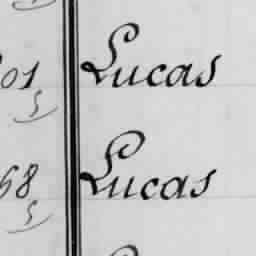 01 Lucas
5
68 Lucas
5